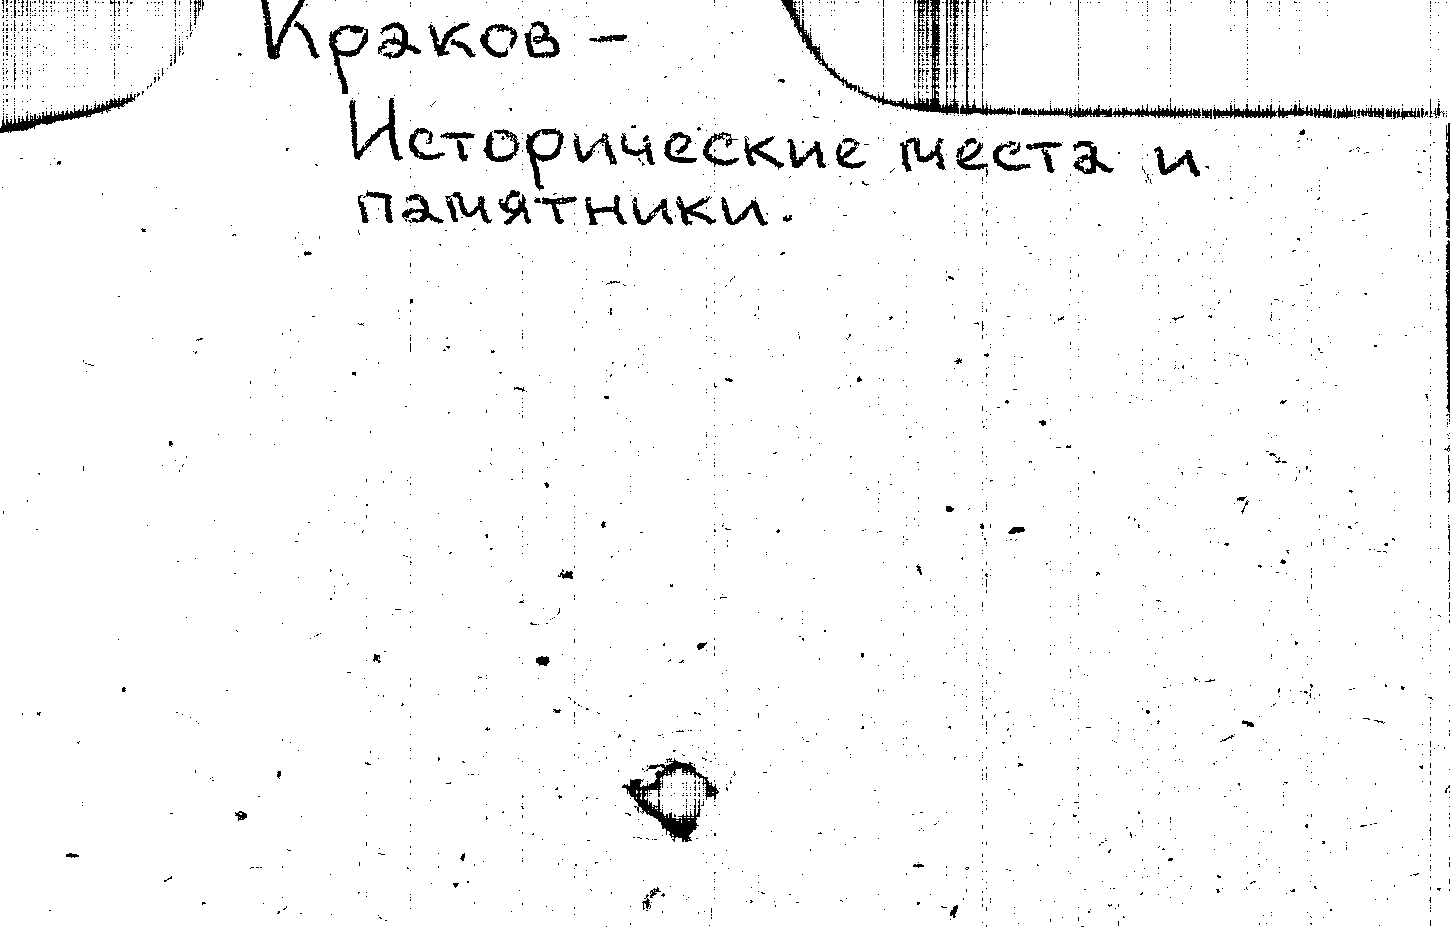 Краков –
Исторические места и
памятники.